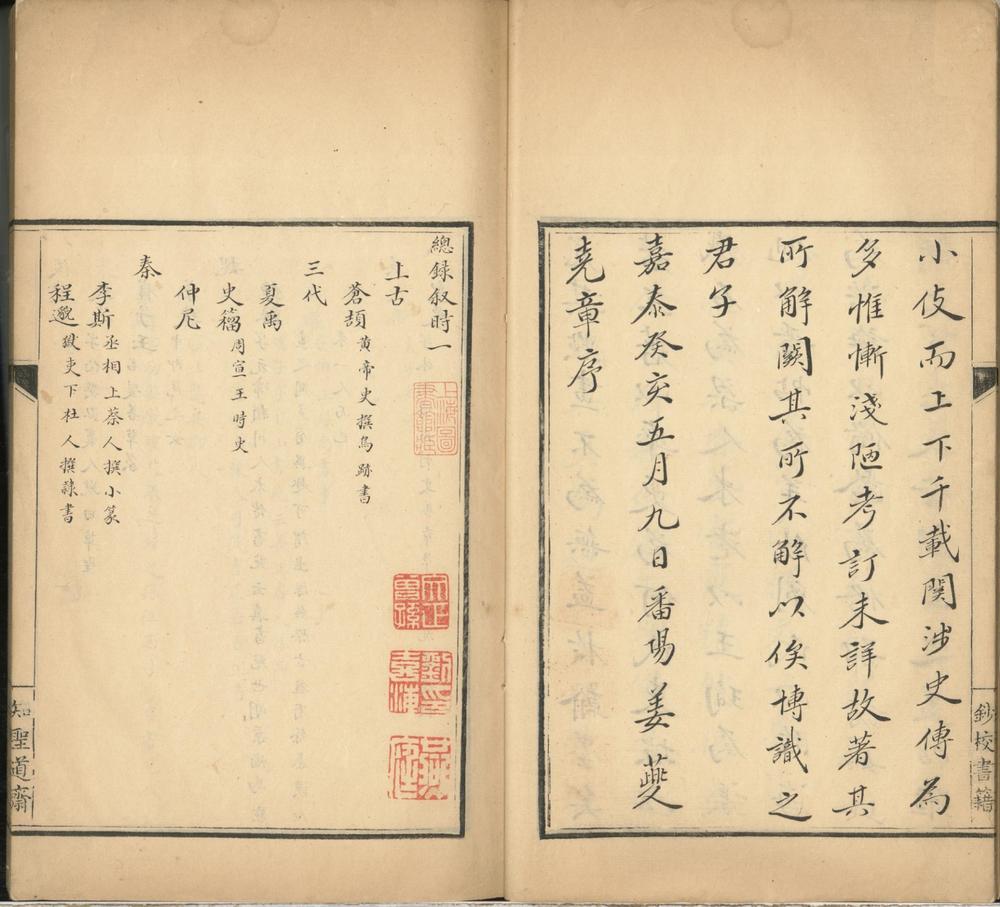 小伎而上下千載関涉史傳為
多惟慚淺陋考訂未詳故著其
所解闕其所不解以俟博識之
君子
嘉泰癸亥五月九日番昜姜夔
堯章序
鈔校書籍
總録叙時一
上古
蒼頡黄帝史撰鳥跡書
三代
夏禹
史籀周宣王時史
仲尼
秦
李斯丞相上蔡人撰小篆
程邈獄吏下杜人撰隷書
知聖道齋